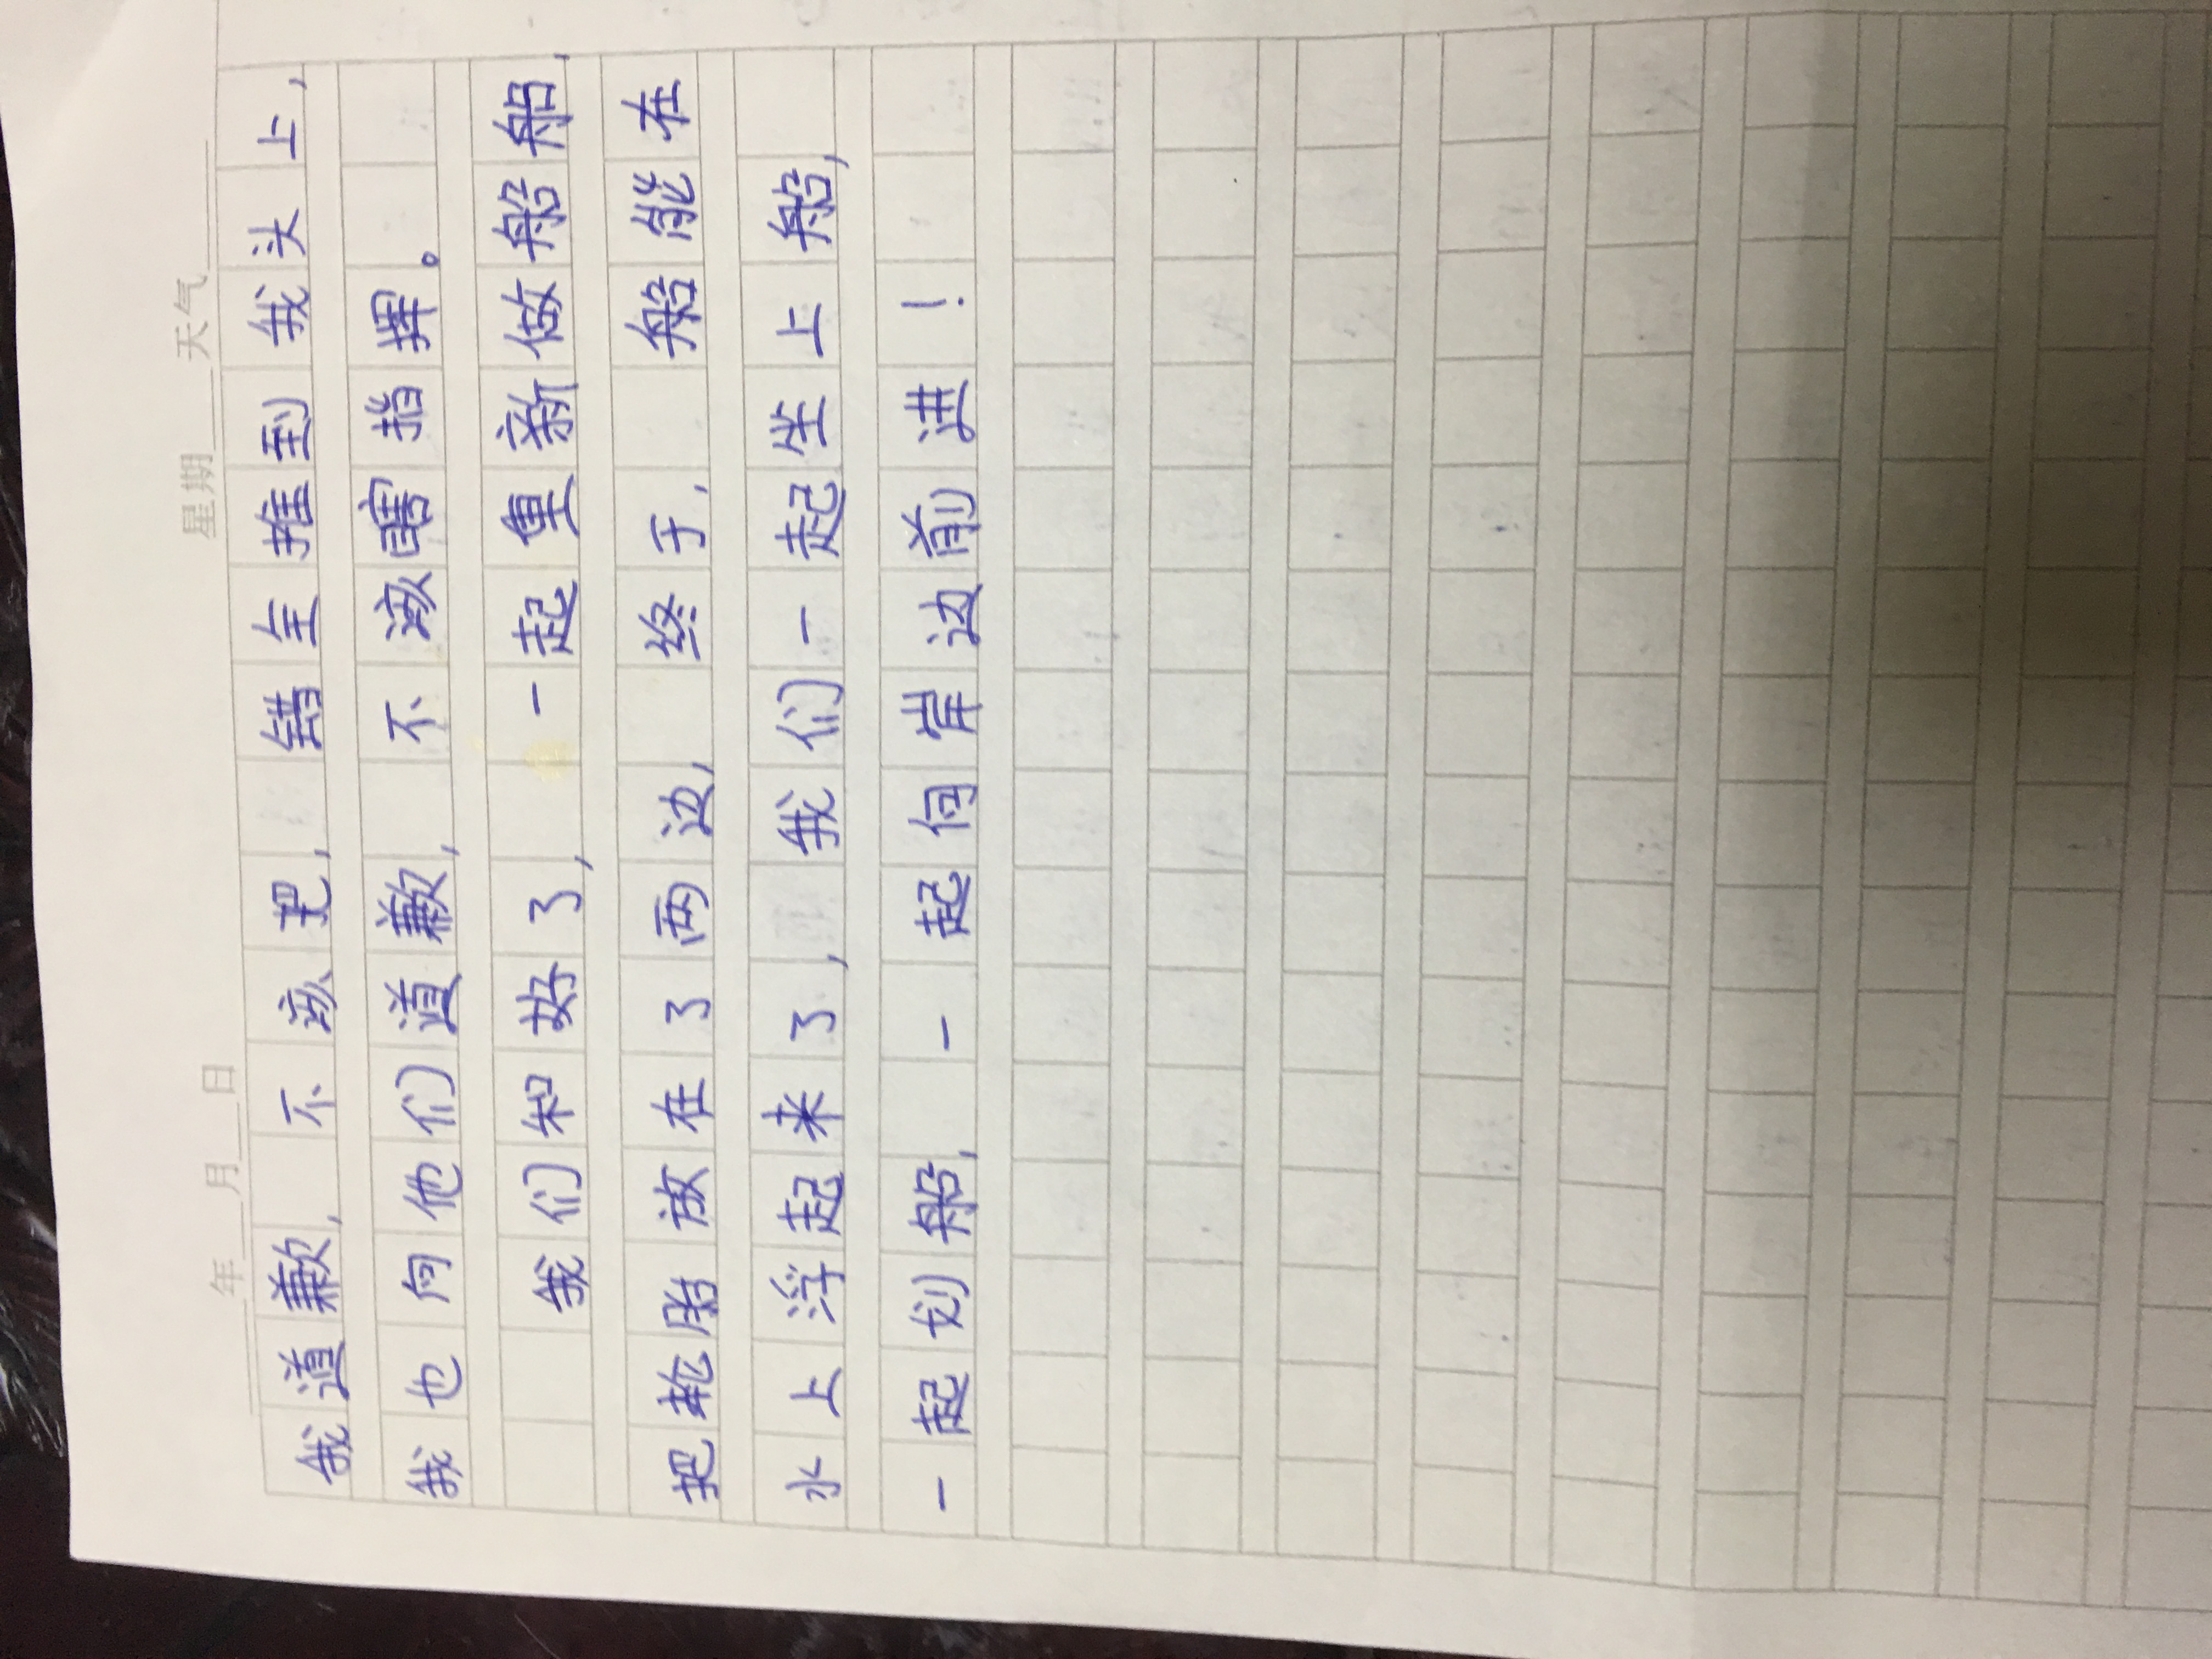 年 月 日 星期 天气
我道歉, 不该把, 错全推到我头上,
我也向他们道歉, 不该瞎指挥。
我们和好了, 一起重新做船船,
把轮胎放在了两边, 终于, 船能在
水上浮起来了, 我们一起坐上船,
一起划船, 一起向岸边前进!